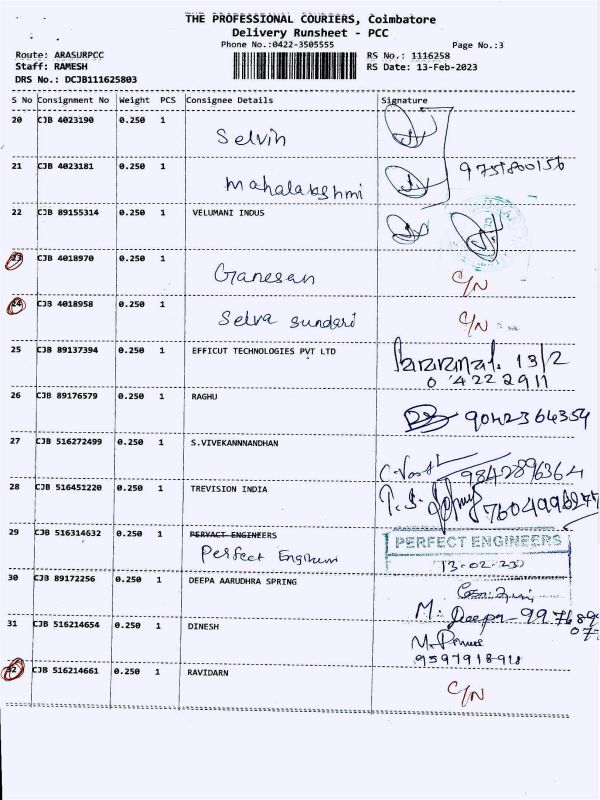 THE PROFESSIONAL COURIERS, Coimbatore
Delivery Runsheet - PCC
Phone No.:0422-3505555 Page No.:3
Route: ARASURPCC RS No.: 1116258
Staff: RAMESH RS Date: 13-Feb-2023
DRS No.: DCJB111625803
S No Consignment No Weight PCS Consignee Details Signature
20 CJB 4023190 0.250 1
Selvin
21 CJB 4023181 0.250 1
Mahalakshmi
22 CJB 89155314 0.250 1 VELUMANI INDUS
23 CJB 4018970 0.250 1
Ganesan C/N
24 CJB 4018958 0.250 1
Selva Sundari C/N
25 CJB 89137394 0.250 1 EFFICUT TECHNOLOGIES PVT LTD
13/2
0 4222911
26 CJB 89176579 0.250 1 RAGHU
9042364354
27 CJB 516272499 0.250 1 S.VIVEKANNNANDHAN
9842896364
28 CJB 516451220 0.250 1 TREVISION INDIA
29 CJB 516314632 0.250 1 PERYACT ENGINEERS
PERFECT ENGINEERS
13-02-23
30 CJB 89172256 0.250 1 DEEPA AARUDHRA SPRING
M. Deepa
31 CJB 516214654 0.250 1 DINESH
9597918918
32 CJB 516214661 0.250 1 RAVIDARN
C/N